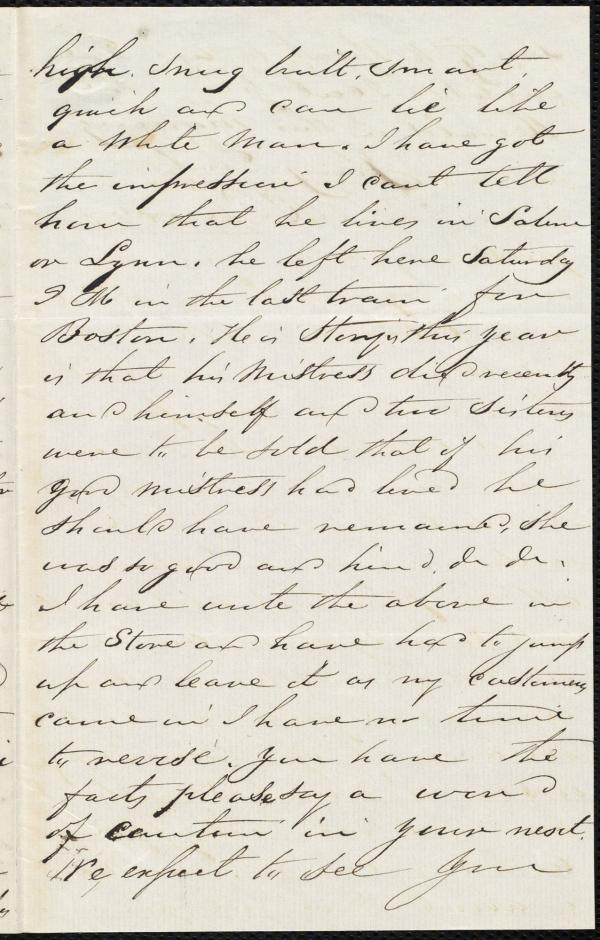 high. Snug built, smart,
quick and can lie like
a White Man. I have got
the impression I cant tell
how that he lives in Salem
or Lynn. he left here Saturday
P M in the last train for
Boston. His Story this year
is that his Mistress died recently
and himself and two sisters
were to be sold that if his
good mistress had lived he
should have remained, she
was so good and kind. &c &c.
I have write the above in
the Store and have had to jump
up and leave it as my customers
came in I have no time
to revise. you have the
facts please say a word
of caution in your next.
We expect to see you